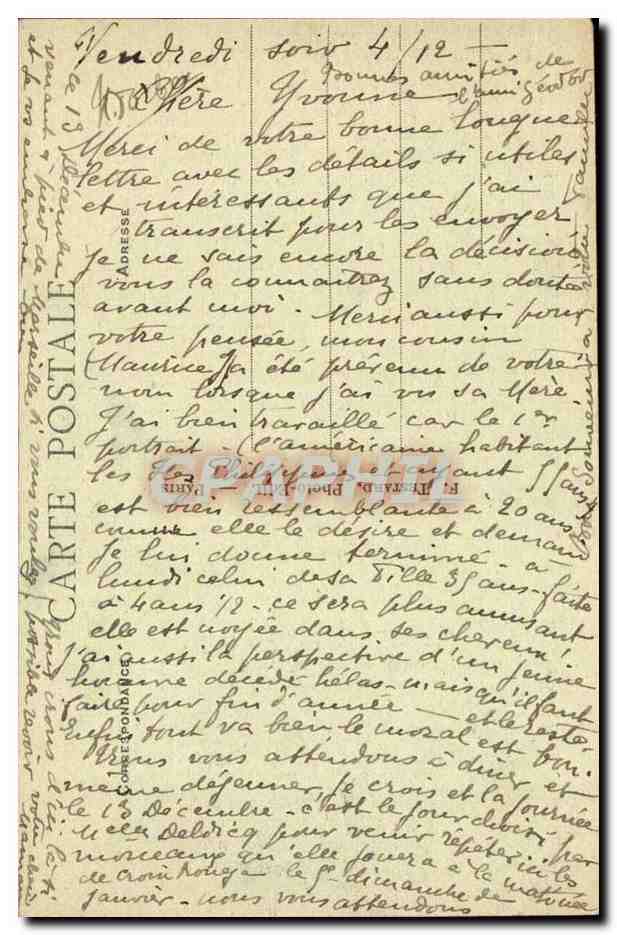 Vendredi soir 4/12 –
Bonnes amitiés de
Chère Yvonne
Merci de votre bonne longue
lettre avec les détails si utiles
et intéressants que j'ai
transcrit pour les envoyer
Je ne sais encore la décision
vous la connaitrez sans doute
avant moi. Merci aussi pour
votre pensée, mon cousin
(Maurice) a été prévenu de votre
nom lorsque j'ai vu sa Mère
J'ai bien travaillé car le 1er
portrait – (l'américaine habitant
les Iles Philippines et ayant 55 ans)
est bien ressemblante à 20 ans,
comme elle le désire et demande
Je lui donne terminé – à
lundi celui de sa fille 35 ans – faite
à 4 ans 1/2 – ce sera plus amusant
elle est noyée dans ses cheveux!
J'ai aussi la perspective d'un jeune
homme décédé hélas – mais qu'il faut
faire pour fin d'année — et le reste
Enfin tout va bien le moral est bon.
Nous vous attendons à diner et
meme déjeuner, je crois et la journée
le 13 Décembre – c'est le jour choisi par
Melle Deldicq pour venir répéter ici les
morceaux qu'elle jouera à la matinée
de Croix Rouge le 5e dimanche de
janvier – nous vous attendons
le 13 Décembre
venant à pied de Marseille si vous voulez
et je vous embrasse
possible revoir votre
Maman
Bons souvenirs à votre famille
CARTE POSTALE
CORRESPONDANCE
ADRESSE
F. TESTARD Photo-Edit. — PARIS
CPAPHIL